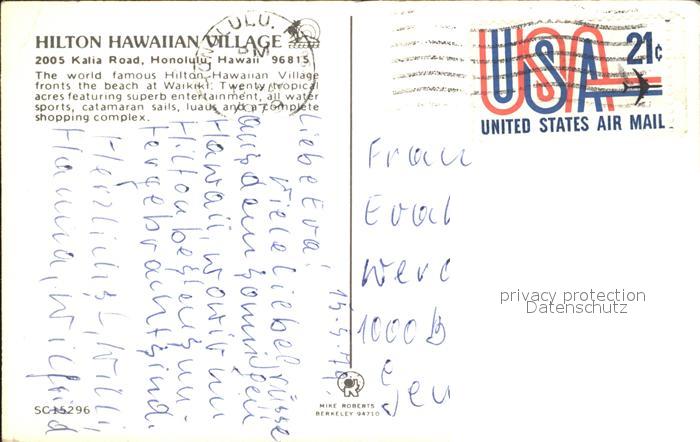 HILTON HAWAIIAN VILLAGE
2005 Kalia Road, Honolulu, Hawaii 96815
The world famous Hilton Hawaiian Village
fronts the beach at Waikiki. Twenty tropical
acres featuring superb entertainment, all water
sports, catamaran sails, luaus and a complete
shopping complex.
HONOLULU
PM
USA 21c
UNITED STATES AIR MAIL
Liebe Eva!
viele liebe Grüsse
aus dem sonnigen
Hawaii, wo wir im
Hilton bestens un-
tergebracht sind.
Herzlichst, Willi
Hanna, Wilfried
Frau
Eva
1000 B
privacy protection
Datenschutz
MIKE ROBERTS
BERKELEY 94710
SC15296